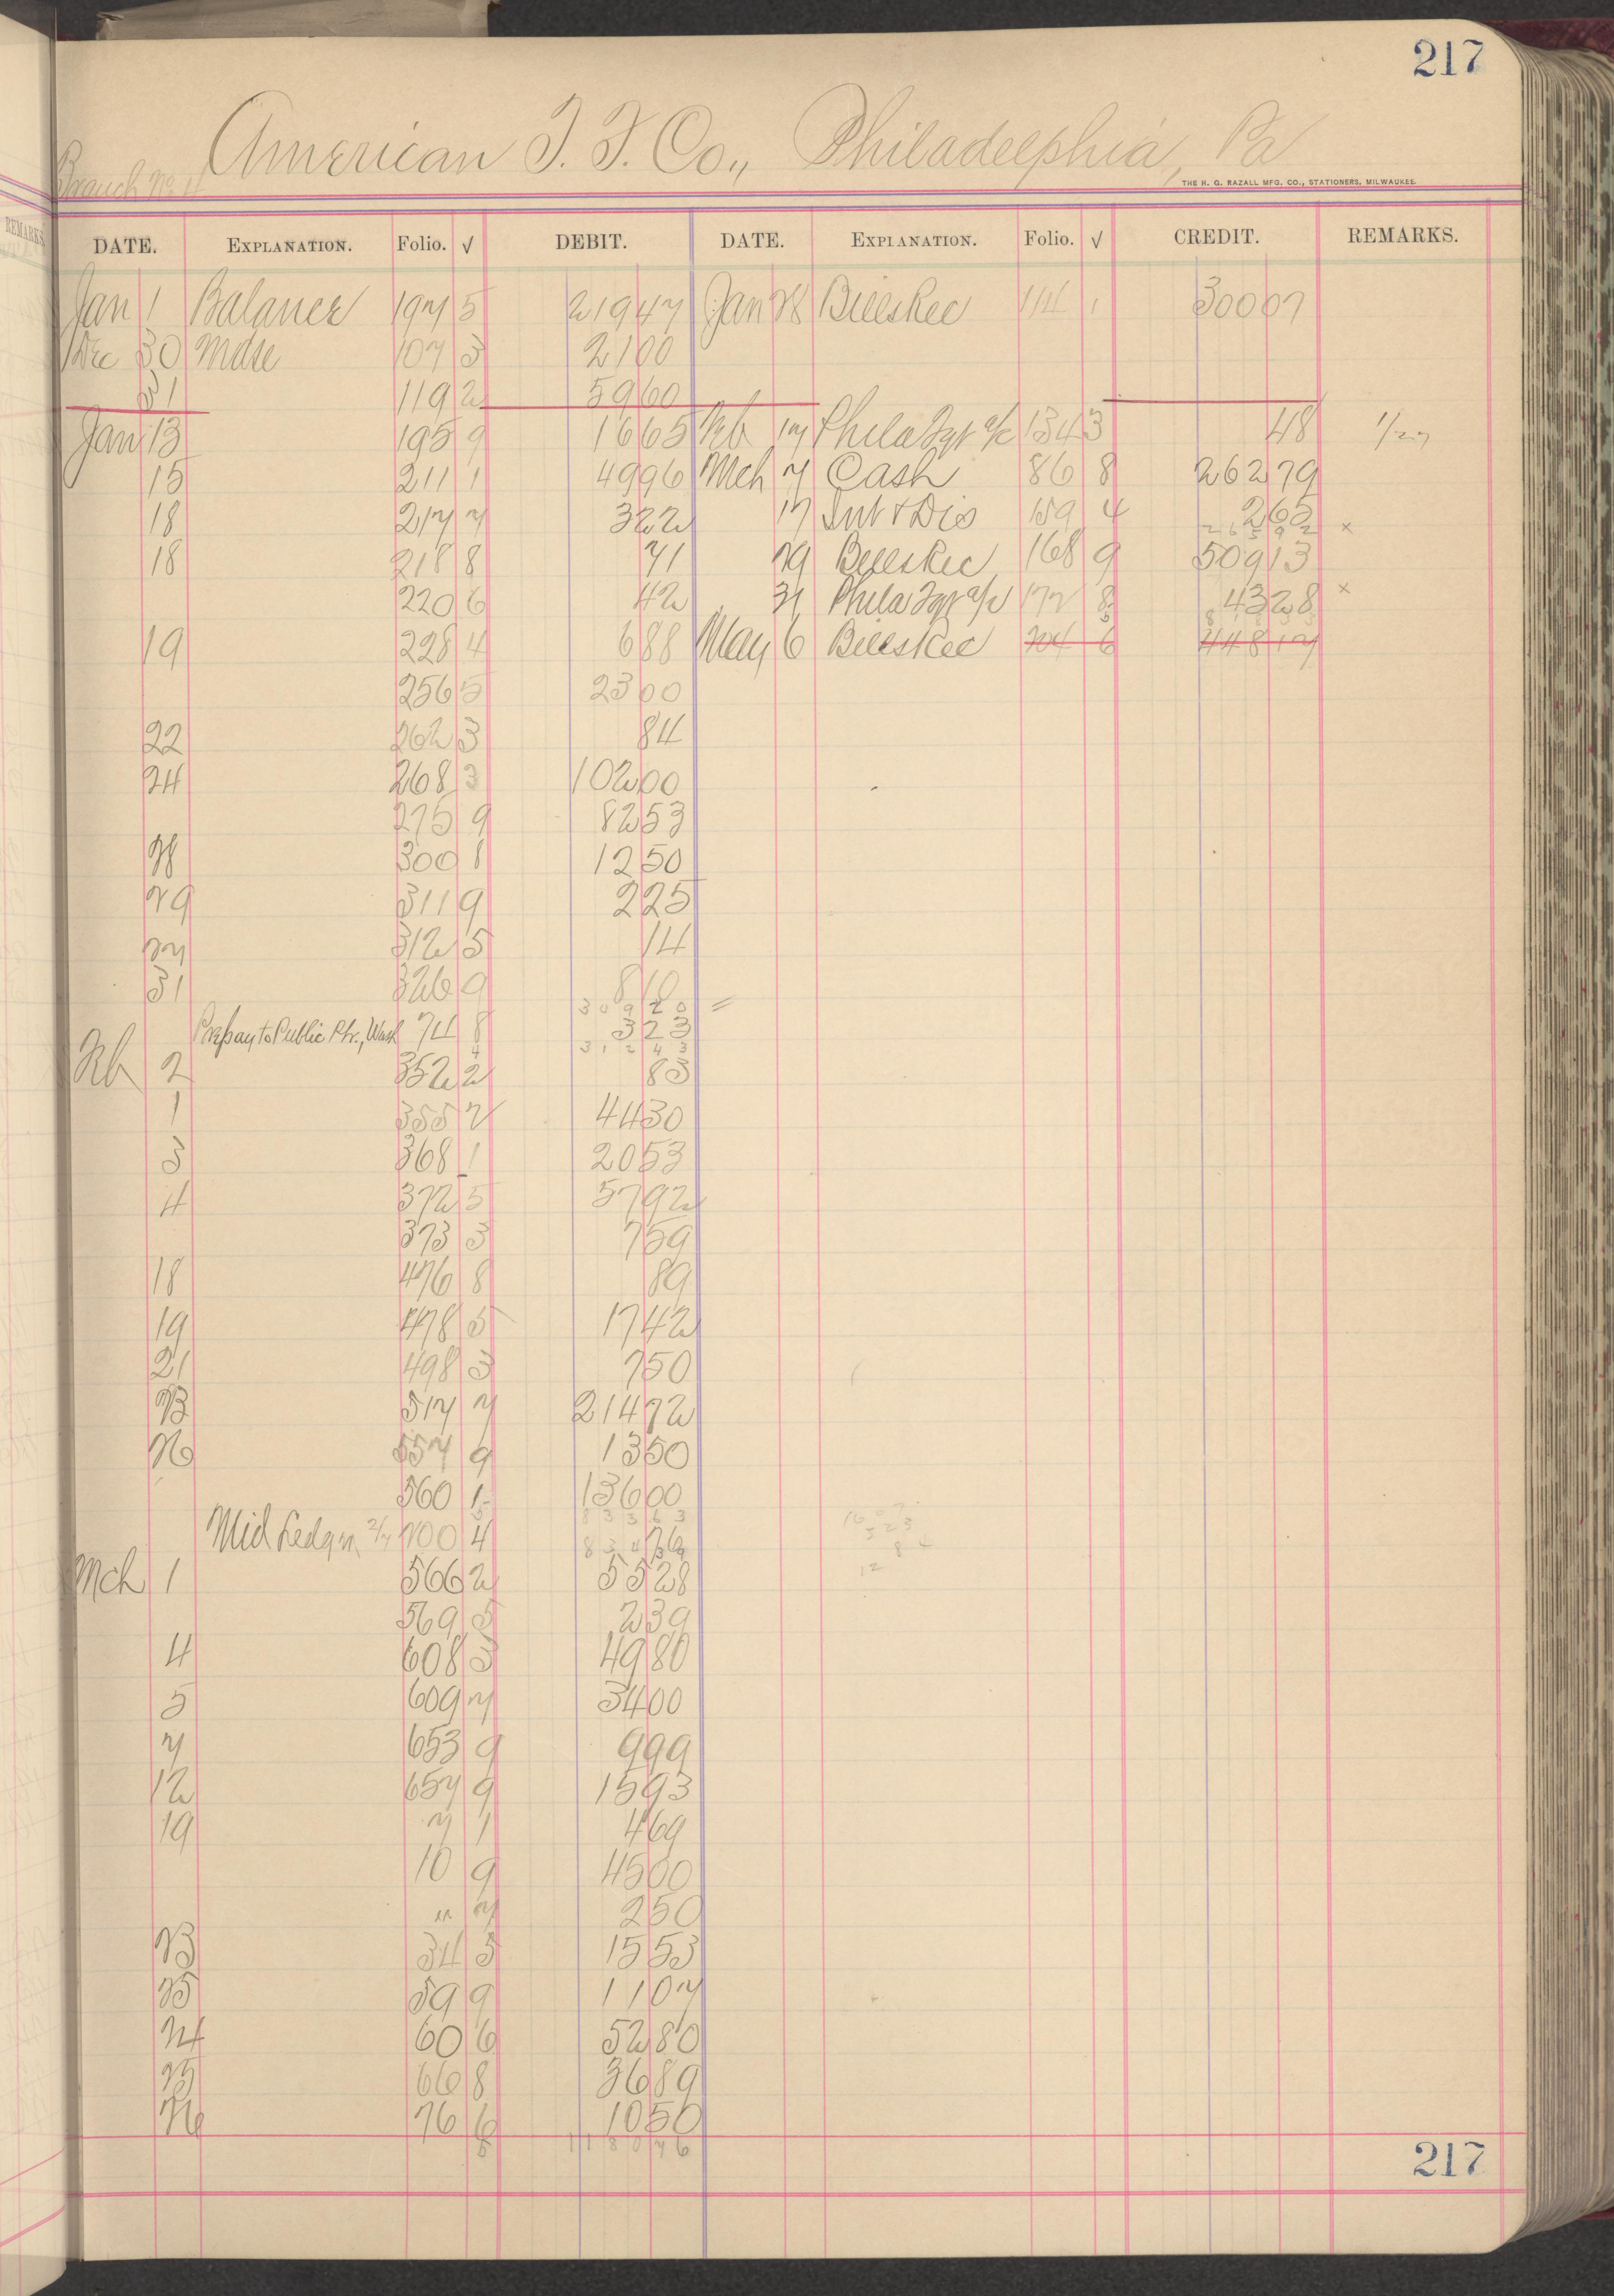 217
American T. F. Co., Philadelphia, Pa
Branch No 4
THE H. G. RAZALL MFG. CO., STATIONERS, MILWAUKEE.
DATE. EXPLANATION. Folio. √ DEBIT. DATE. EXPLANATION. Folio. √ CREDIT. REMARKS.
Jan 1 Balance 197 5 219 47 Jan 28 Bills Rec 114 1 300 07
Dec 30 Mdse 107 3 21 00
31 119 2 59 60
Jan 13 195 9 16 65 Feb 17 Phila Jgt a/c 134 3 48 1/27
15 211 1 49 96 Mch 7 Cash 86 8 262 79
18 217 7 3 22 17 Int & Dis 159 4 2 65 ×
2 6 5 9 2
18 218 8 71 29 Bills Rec 168 9 509 13
220 6 42 31 Phila Jgt a/c 172 8 43 28 ×
19 228 4 6 88 May 6 Bills Rec 204 6 448 17
256 5 23 00
22 262 3 84
24 268 3 102 00
275 9 82 53
28 300 1 12 50
29 311 9 2 25
27 312 5 14
31 326 9 8 10
3 0 9 2 0 =
Prepay to Public Ptr., Wash 74 8 3 23
3 1 2 4 3
Feb 2 352 2 83
1 355 2 44 30
3 368 1 20 53
4 372 5 57 92
373 3 7 59
18 476 8 89
19 478 5 17 42
21 498 3 7 50
23 517 7 214 72
26 557 9 13 50
560 1 136 00
8 3 3 6 3
Mid Ledgr 2/7 100 4 76
Mch 1 566 2 55 28
569 5 2 39
4 608 3 49 80
5 609 7 34 00
7 653 9 9 99
12 657 9 15 93
19 7 1 4 69
10 9 45 00
" 7 2 50
23 34 5 15 53
25 59 9 11 07
24 60 6 52 80
25 66 8 36 89
26 76 6 10 50
5 1 1 8 0 7 6
217